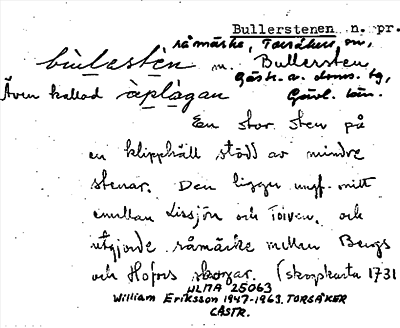 Bullerstenen n. pr.
råmärke, Torsåkers sn,
bùlæstèn m. Bullersten,
Gästr. a. doms. tg,
Även kallad àplågan Gävl. län.
En stor sten på
en klipphäll stödd av mindre
stenar. Den ligger ungf. mitt
emellan Lissjön och Toiven, och
utgjorde råmärke mellan Bergs
och Hofors skogar. (skogskarta 1731
ULMA 25063
William Eriksson 1947-1963. TORSÅKER
GÄSTR.